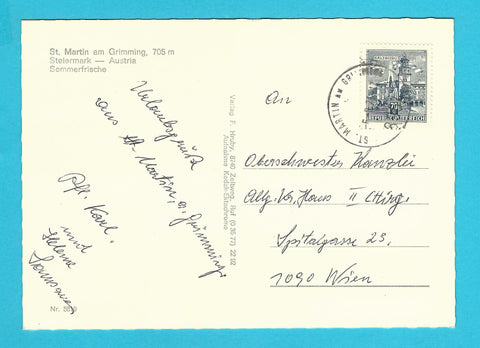 St. Martin am Grimming, 705 m
Steiermark — Austria
Sommerfrische
Urlaubsgrüße
aus St. Martin a. Grimming.
Pfl. Karl.
und
Helene
Nr. 38
Verlag F. Hruby, 8740 Zeltweg, Ruf (0 35 77) 22 82
Aufnahme Kodak-Ektachrome
REPUBLIK ÖSTERREICH
ST. MARTIN AM GRIMMING
An
Oberschwester Kanzlei
Allg. Kr. Haus II Chirg.
Spitalgasse 23.
1090 Wien